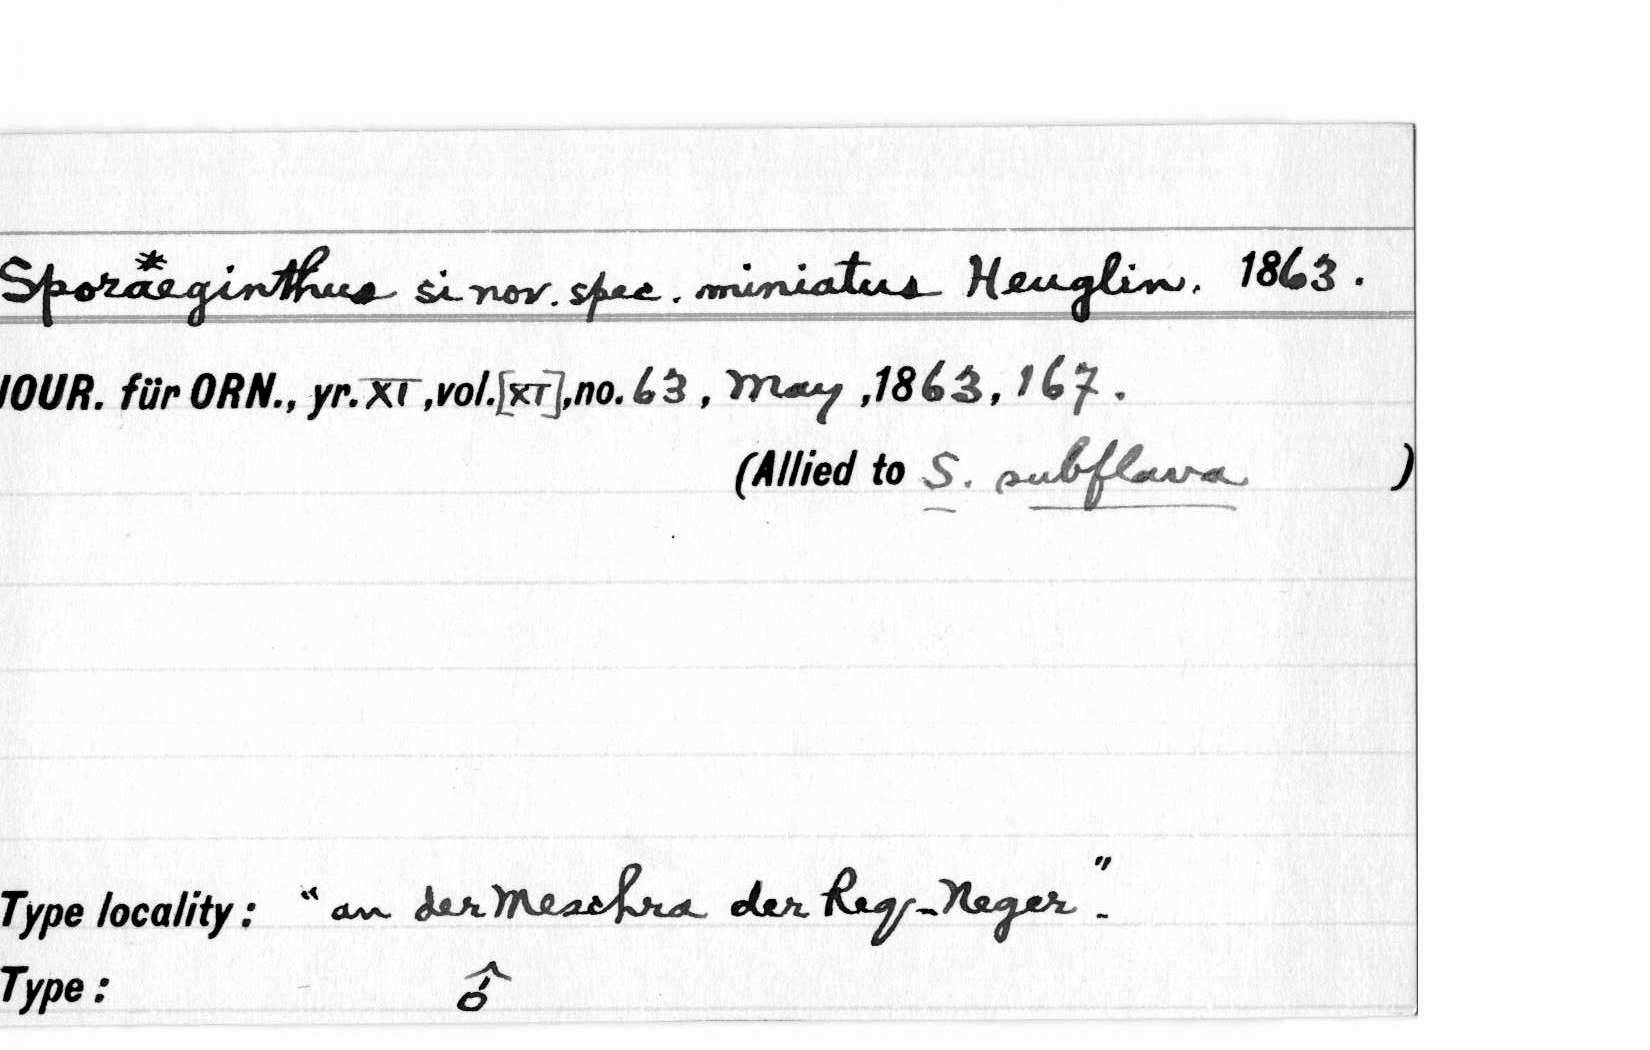 Sporaeginthus* si nov. spec. miniatus Heuglin. 1863.
JOUR. für ORN., yr. XI, vol. [XI], no. 63, May, 1863, 167.
(Allied to S. subflava)
Type locality: "an der Meschra der Req-Neger".
Type: ♂